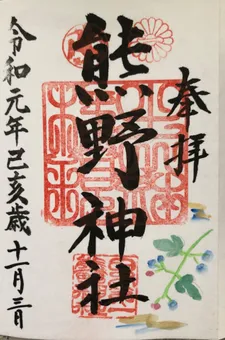 奉拝
熊野神社
令和元年己亥歳 十一月三日